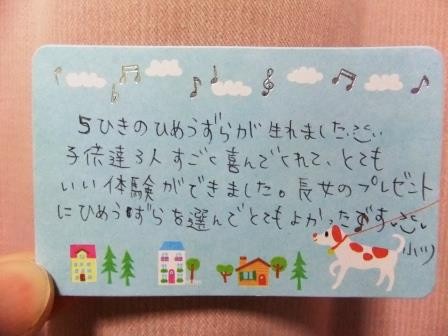 5ひきのひめうずらが生れました
子供達3人すごく喜んでくれて、とても
いい体験ができました。長女のプレゼント
にひめうずらを選んでとてもよかったです
小ツ